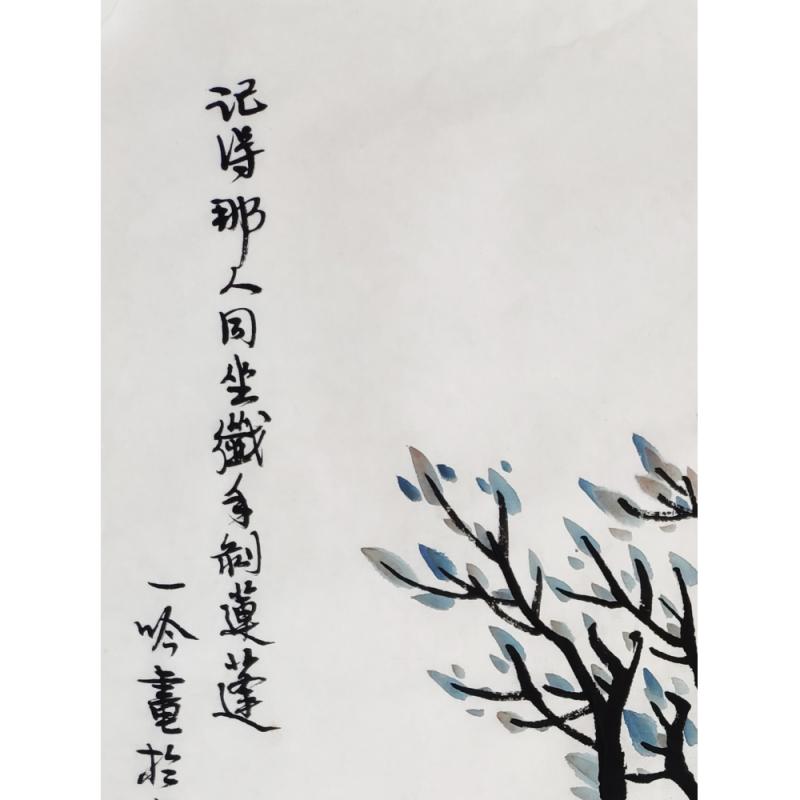 记得那人同坐纖手剝莲蓬
一吟畫於